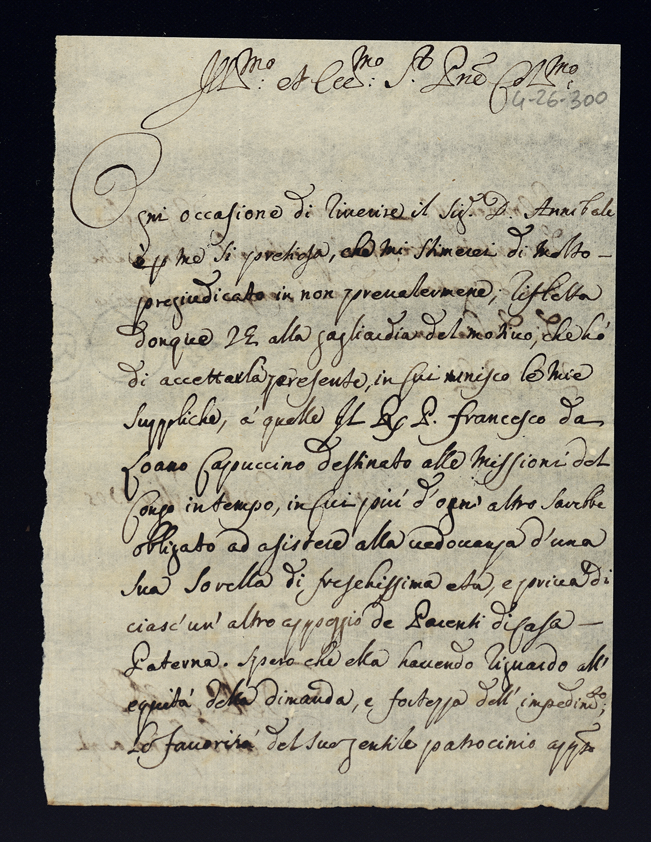 Ill.mo et Ecc.mo S.r P.ne Col.mo
4-26-300
Ogni occasione di riverire il Sig.r D. Annibale
è p me sì pretiosa, che mi stimerei di molto
pregiudicato in non prevalermene; rifletta
donque VE alla gagliardia del motivo, che hò
di accettar la presente, in cui unisco le mie
suppliche, à quelle Il P. Francesco da
Loano Capuccino destinato alle Missioni del
Congo in tempo, in cui più d'ogni altro sarebbe
obligato ad asistere alla vedovanza d'una
sua sorella di freschissima età, e priva di
ciasc'un'altro appoggio de Parenti di Casa
Paterna. Spero che ella havendo riguardo all'
equità della dimanda, e fortezza dell'impedim.to;
Lo favorirà del suo gentile patrocinio